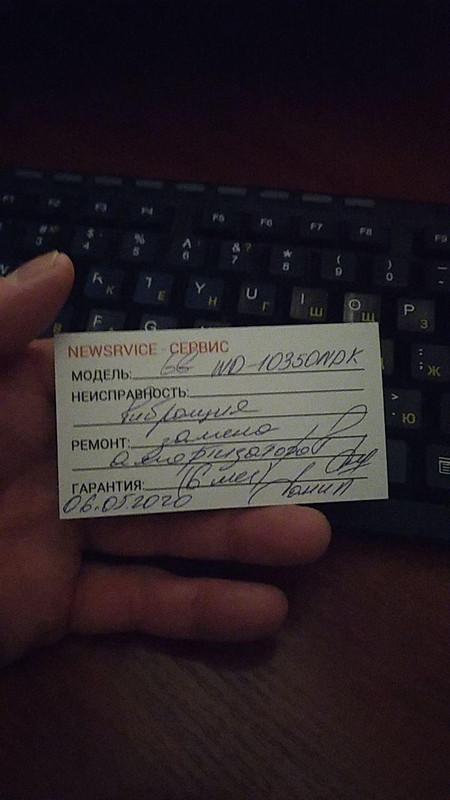 F1 F2 F3 F4 F5 F6 F7 F8 F9
# 3 $ 4 % 5 ^ 6 & 7 ? * 8 ( 9 ) 0
К Е Y Н U Г I Ш O Щ P З
F G
Ж
> Ю
NEWSRVICE - СЕРВИС
МОДЕЛЬ: WD-10350NDK
НЕИСПРАВНОСТЬ:
Вибрация
РЕМОНТ: замена
амортизаторов
ГАРАНТИЯ: (6 мес)
06.05.2020